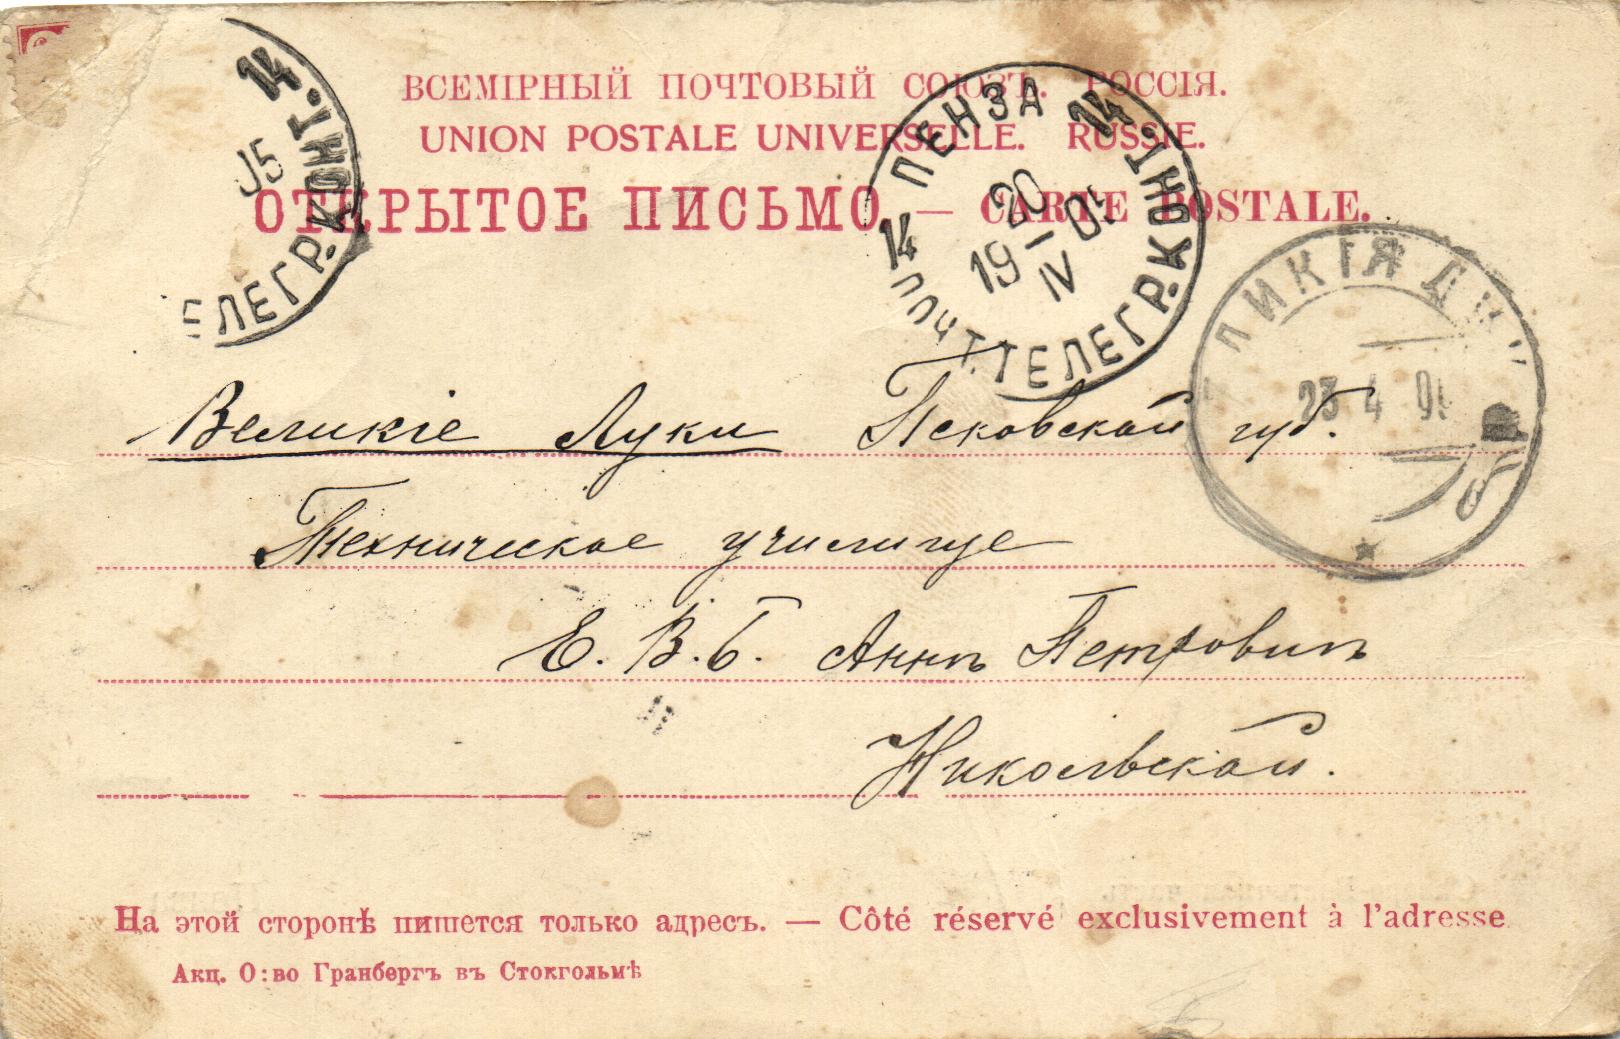 ВСЕМІРНЫЙ ПОЧТОВЫЙ СОЮЗЪ. РОССІЯ.
UNION POSTALE UNIVERSELLE. RUSSIE.
ОТКРЫТОЕ ПИСЬМО. — CARTE POSTALE.
14
05
ЕЛЕГР. КОНТ.
ПЕНЗА
14 ПОЧТ. ТЕЛЕГР. КОНТ. 14
20
19 – 05
IV
ЛИКІЯ ЛУК
23 4 05
Великіе Луки Псковской губ.
Техническое училище
Е. В. Б. Аннѣ Петровнѣ
Никольской.
На этой сторонѣ пишется только адресъ. — Côté réservé exclusivement à l'adresse
Акц. О:во Гранбергъ въ Стокгольмѣ